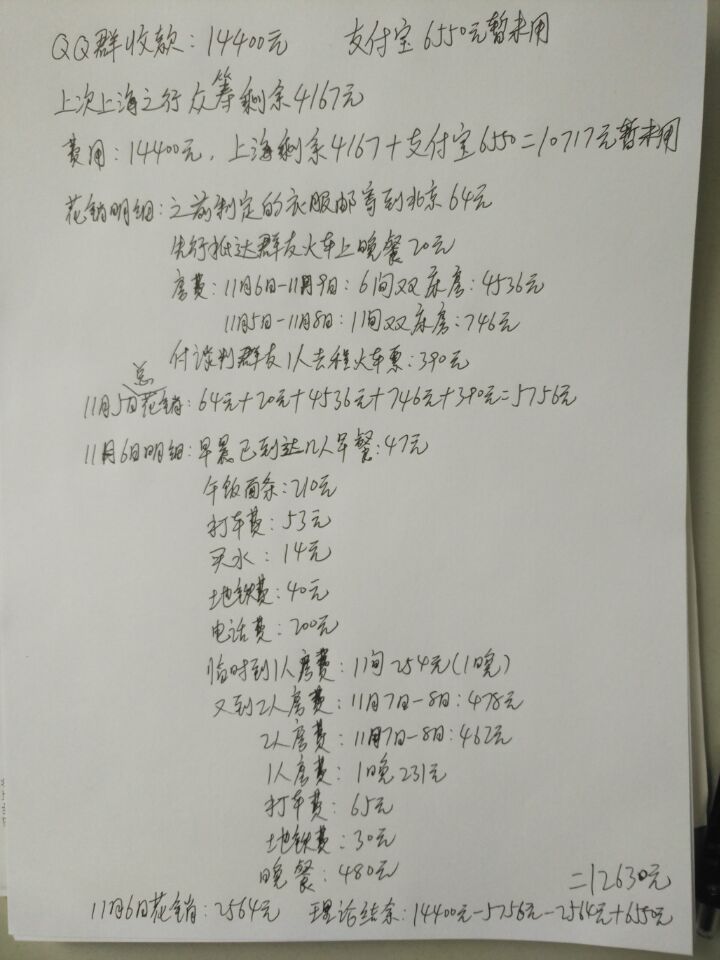 QQ群收款：14400元 支付宝6550元暂未用
上次上海之行众筹剩余4167元
费用：14400元，上海剩余4167+支付宝6550=10717元暂未用
花销明细：之前制定的衣服邮寄到北京64元
先行抵达群友火车上晚餐20元
房费：11月6日-11月9日：6间双床房：4536元
11月5日-11月8日：1间双床房：746元
付谈判群友1人去程火车票：390元
11月5日总花销：64元+20元+4536元+746元+390元=5756元
11月6日明细：早晨已到达几人早餐：47元
午饭面条：210元
打车费：53元
买水：14元
地铁费：40元
电话费：200元
临时到1人房费：1间254元(1晚)
又到2人房费：11月7日-8日：478元
2人房费：11月7日-8日：462元
1人房费：1晚231元
打车费：65元
地铁费：30元
晚餐：480元
=12630元
11月6日花销：2564元 理论结余：14400元-5756元-2564元+6550元